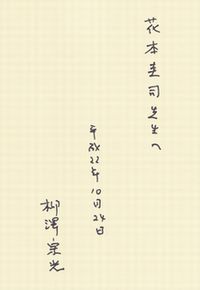 花本圭司先生へ
平成22年10月24日
柳澤宗光